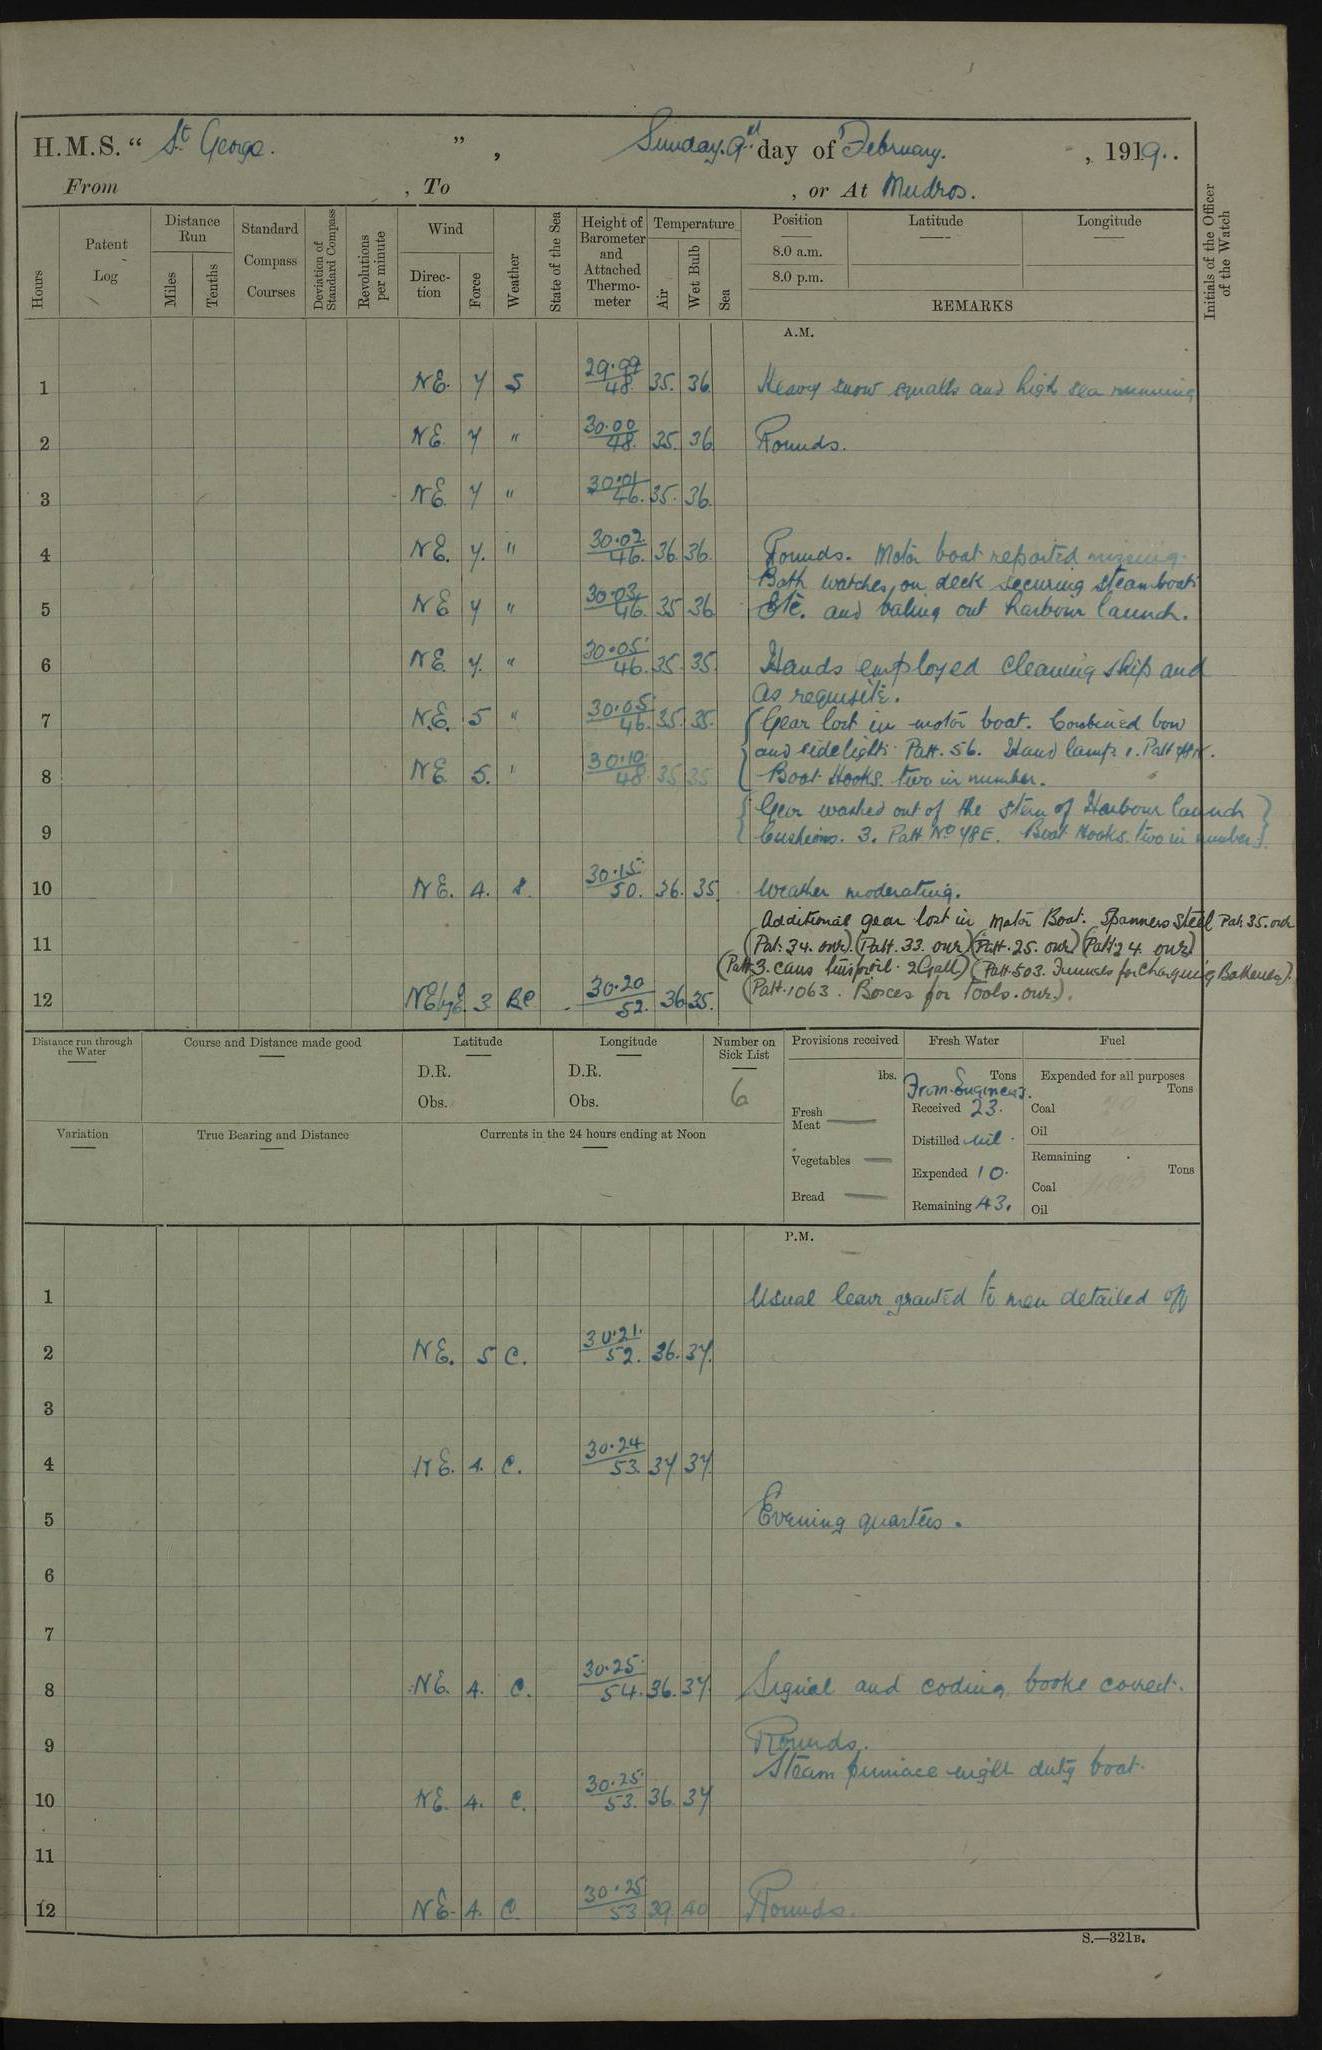 H.M.S. “ St George. ” , Sunday. 9th day of February. , 1919..
From , To , or At Mudros.
Hours
Patent Log
Distance Run
Miles
Tenths
Standard Compass Courses
Deviation of Standard Compass
Revolutions per minute
Wind
Direc-tion
Force
Weather
State of the Sea
Height of Barometer and Attached Thermo-meter
Temperature
Air
Wet Bulb
Sea
Position
8.0 a.m.
8.0 p.m.
Latitude
Longitude
REMARKS
Initials of the Officer of the Watch
A.M.
1 NE. 7 S 29.99 48. 35. 36 Heavy snow squalls and high sea running
2 NE. 7 " 30.00 48. 35. 36 Rounds.
3 NE. 7 " 30.01 46. 35. 36.
4 NE. 7. " 30.02 46. 36. 36. Rounds. Motor boat reported missing.
Both watches on deck securing steamboats
5 NE 7 " 30.03 46. 35 36 Etc. and baling out harbour launch.
6 NE 7. " 30.05 46. 35. 35. Hands employed cleaning ship and
as requisite.
7 N.E. 5 " 30.05 46. 35. 35. Gear lost in motor boat. Combined bow
and sidelights Patt. 56. Hand lamps 1. Patt
8 NE 5. " 30.10 48 35 35 Boat Hooks. two in number.
Gear washed out of the stern of Harbour launch
9 Cushions. 3. Patt No 78E. Boat Hooks. two in number.
10 NE. 4. S. 30.15 50. 36. 35. Weather moderating.
Additional gear lost in Motor Boat. Spanners Steel Pat. 35. one
11 (Pat. 34. one). (Patt. 33. one) (Patt. 25. one) (Patt 24. one)
(Patt 3. cans 2Gall) (Patt. 503. Funnels for Charging Batteries).
12 NEbyE. 3 BC 30.20 52. 36 35. (Patt. 1063. Boxes for Tools. one).
Distance run through the Water
Course and Distance made good
Latitude
D.R.
Obs.
Longitude
D.R.
Obs.
Number on Sick List
6
Provisions received
lbs.
Fresh Meat
Vegetables
Bread
Fresh Water
Tons
From Engineers.
Received 23.
Distilled Nil.
Expended 10.
Remaining 43.
Fuel
Expended for all purposes
Tons
Coal
Oil
Remaining
Tons
Coal
Oil
Variation
True Bearing and Distance
Currents in the 24 hours ending at Noon
P.M.
1 Usual leave granted to men detailed off
2 NE. 5 C. 30.21. 52. 36. 37.
3
4 NE. 4. C. 30.24 53. 37 37
5 Evening quarters.
6
7
8 NE. 4. C. 30.25. 54. 36. 37. Signal and coding books correct.
9 Rounds.
Steam pinnace night duty boat.
10 NE. 4. C. 30.25. 53. 36. 37
11
12 NE. 4. C 30.25 53 39 40 Rounds.
S.—321B.